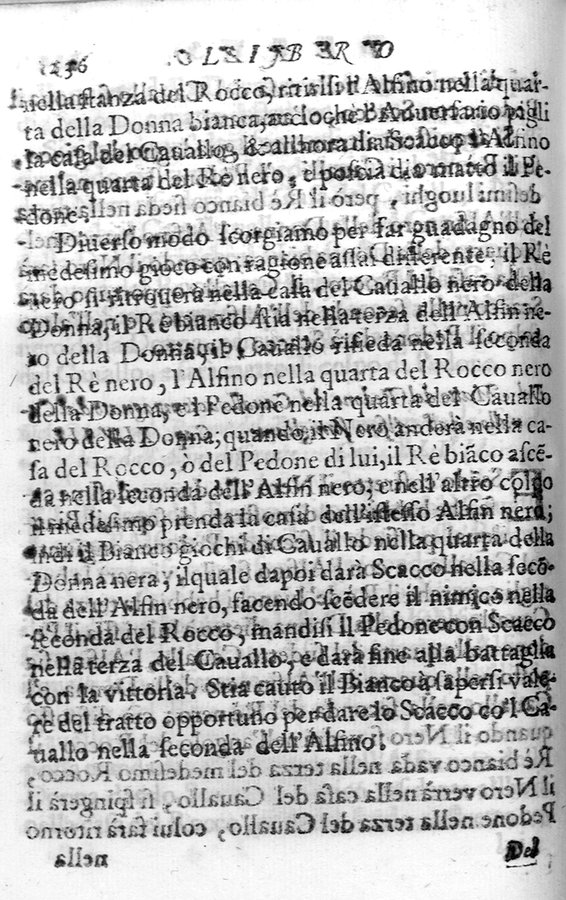 236 O L I B E R O
nella stanza del Rocco, ritirisi l'Alfino nella quar-
ta della Donna bianca, accioche l'Aduersario pigli
la casa del Cauallo, & allhora dia Scacco l'Alfino
nella quarta del Rè nero, e poscia dia matto il Pe-
done.
Diuerso modo scorgiamo per far guadagno del
medesimo gioco con ragione assai differente; il Rè
nero si ritrouerà nella casa del Cauallo nero della
Donna, il Rè bianco stia nella terza dell'Alfin ne-
ro della Donna, il Cauallo risieda nella seconda
del Rè nero, l'Alfino nella quarta del Rocco nero
della Donna, e l Pedone nella quarta del Cauallo
nero della Donna; quando il Nero anderà nella ca-
sa del Rocco, ò del Pedone di lui, il Rè biãco ascẽ-
da nella seconda dell'Alfin nero; e nell'altro colpo
il medesimo prenda la casa dell'istesso Alfin nero;
indi il Bianco giochi di Cauallo nella quarta della
Donna nera, ilquale dapoi darà Scacco nella secõ-
da dell'Alfin nero, facendo scẽdere il nimico nella
seconda del Rocco, mandisi il Pedone con Scacco
nella terza del Cauallo, e darà fine alla battaglia
con la vittoria. Stia cauto il Bianco à sapersi vale-
re del tratto opportuno per dare lo Scacco co'l Ca-
uallo nella seconda dell'Alfino.
Del